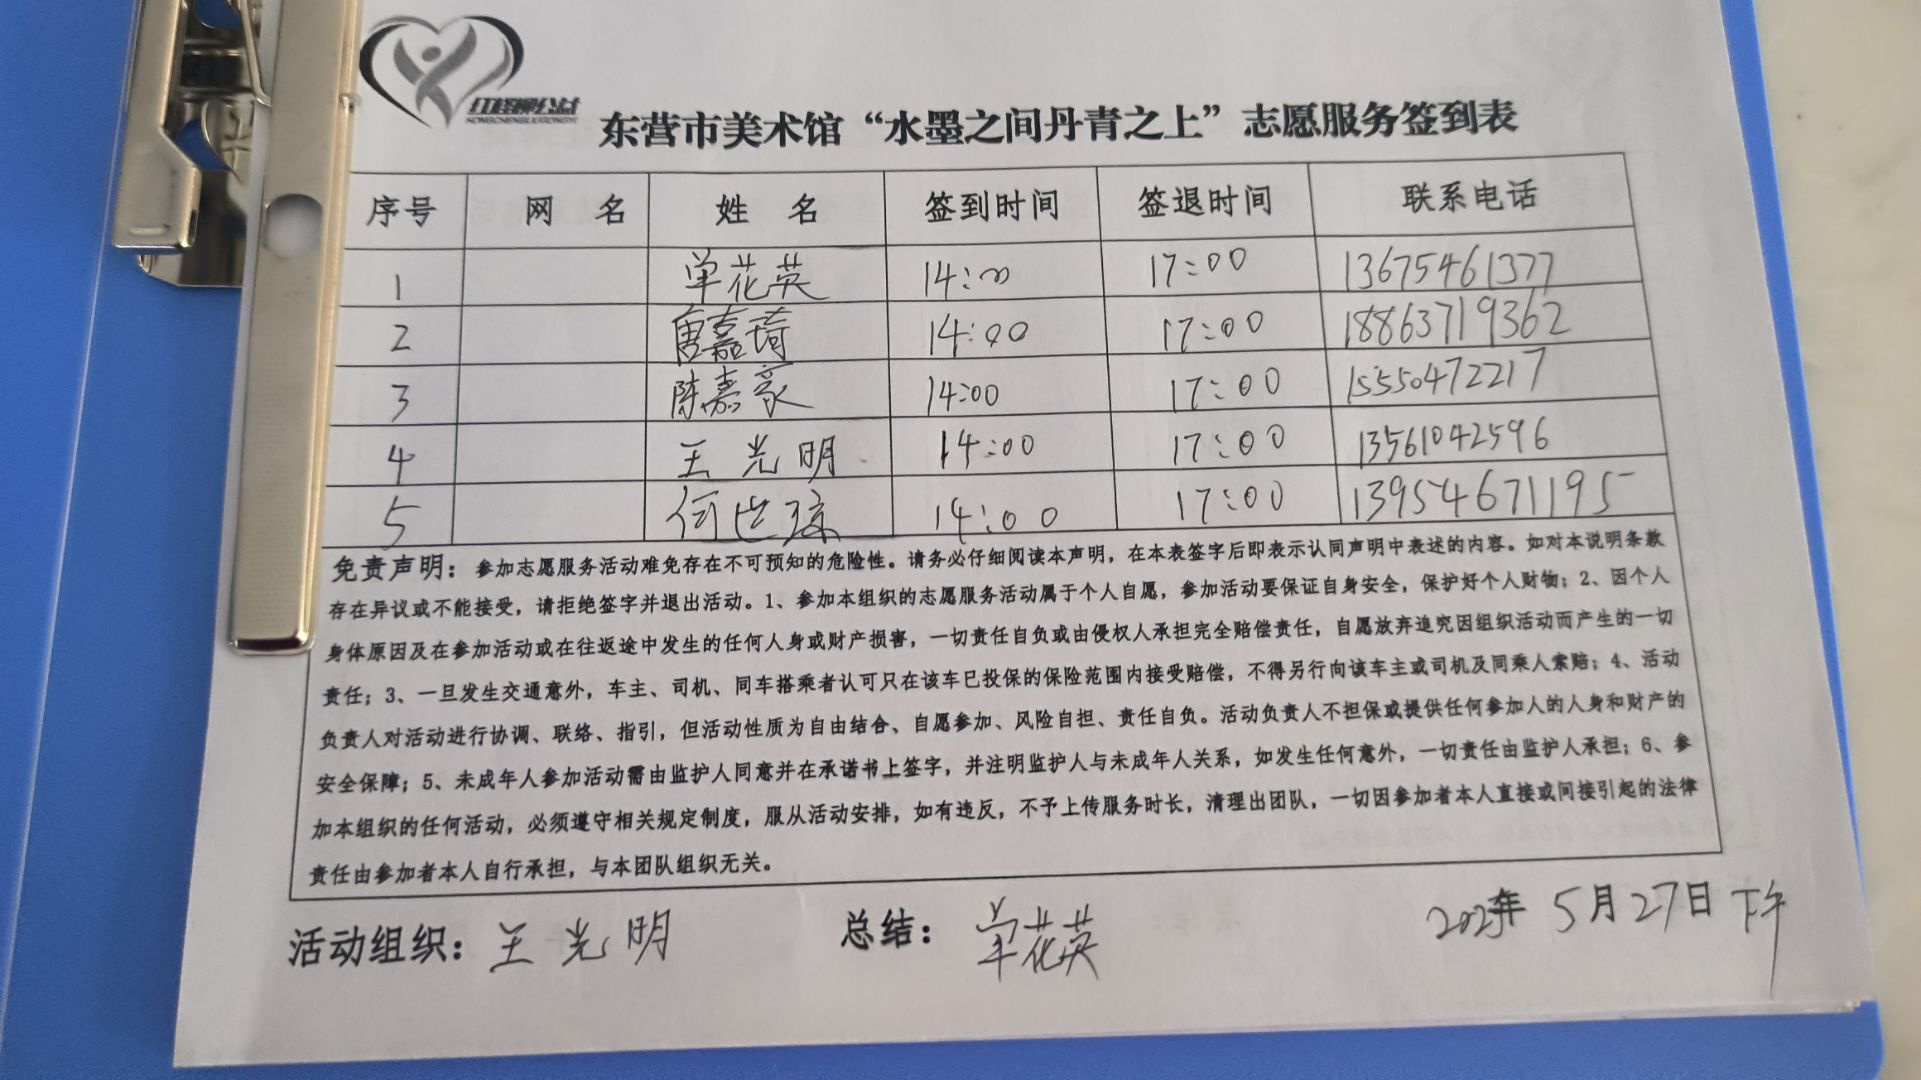 红柽柳公益
HONGCHENGLIUGONGYI
东营市美术馆“水墨之间丹青之上”志愿服务签到表
序号 网 名 姓 名 签到时间 签退时间 联系电话
1 单花英 14:00 17:00 13675461377
2 唐嘉琦 14:00 17:00 18863719362
3 陈嘉豪 14:00 17:00 15550472217
4 王光明 14:00 17:00 13561042596
5 何世琼 14:00 17:00 13954671195
免责声明：参加志愿服务活动难免存在不可预知的危险性。请务必仔细阅读本声明，在本表签字后即表示认同声明中表述的内容。如对本说明条款
存在异议或不能接受，请拒绝签字并退出活动。1、参加本组织的志愿服务活动属于个人自愿，参加活动要保证自身安全，保护好个人财物；2、因个人
身体原因及在参加活动或在往返途中发生的任何人身或财产损害，一切责任自负或由侵权人承担完全赔偿责任，自愿放弃追究因组织活动而产生的一切
责任；3、一旦发生交通意外，车主、司机、同车搭乘者认可只在该车已投保的保险范围内接受赔偿，不得另行向该车主或司机及同乘人索赔；4、活动
负责人对活动进行协调、联络、指引，但活动性质为自由结合、自愿参加、风险自担、责任自负。活动负责人不担保或提供任何参加人的人身和财产的
安全保障；5、未成年人参加活动需由监护人同意并在承诺书上签字，并注明监护人与未成年人关系，如发生任何意外，一切责任由监护人承担；6、参
加本组织的任何活动，必须遵守相关规定制度，服从活动安排，如有违反，不予上传服务时长，清理出团队，一切因参加者本人直接或间接引起的法律
责任由参加者本人自行承担，与本团队组织无关。
活动组织：王光明 总结：单花英 2025年5月27日下午